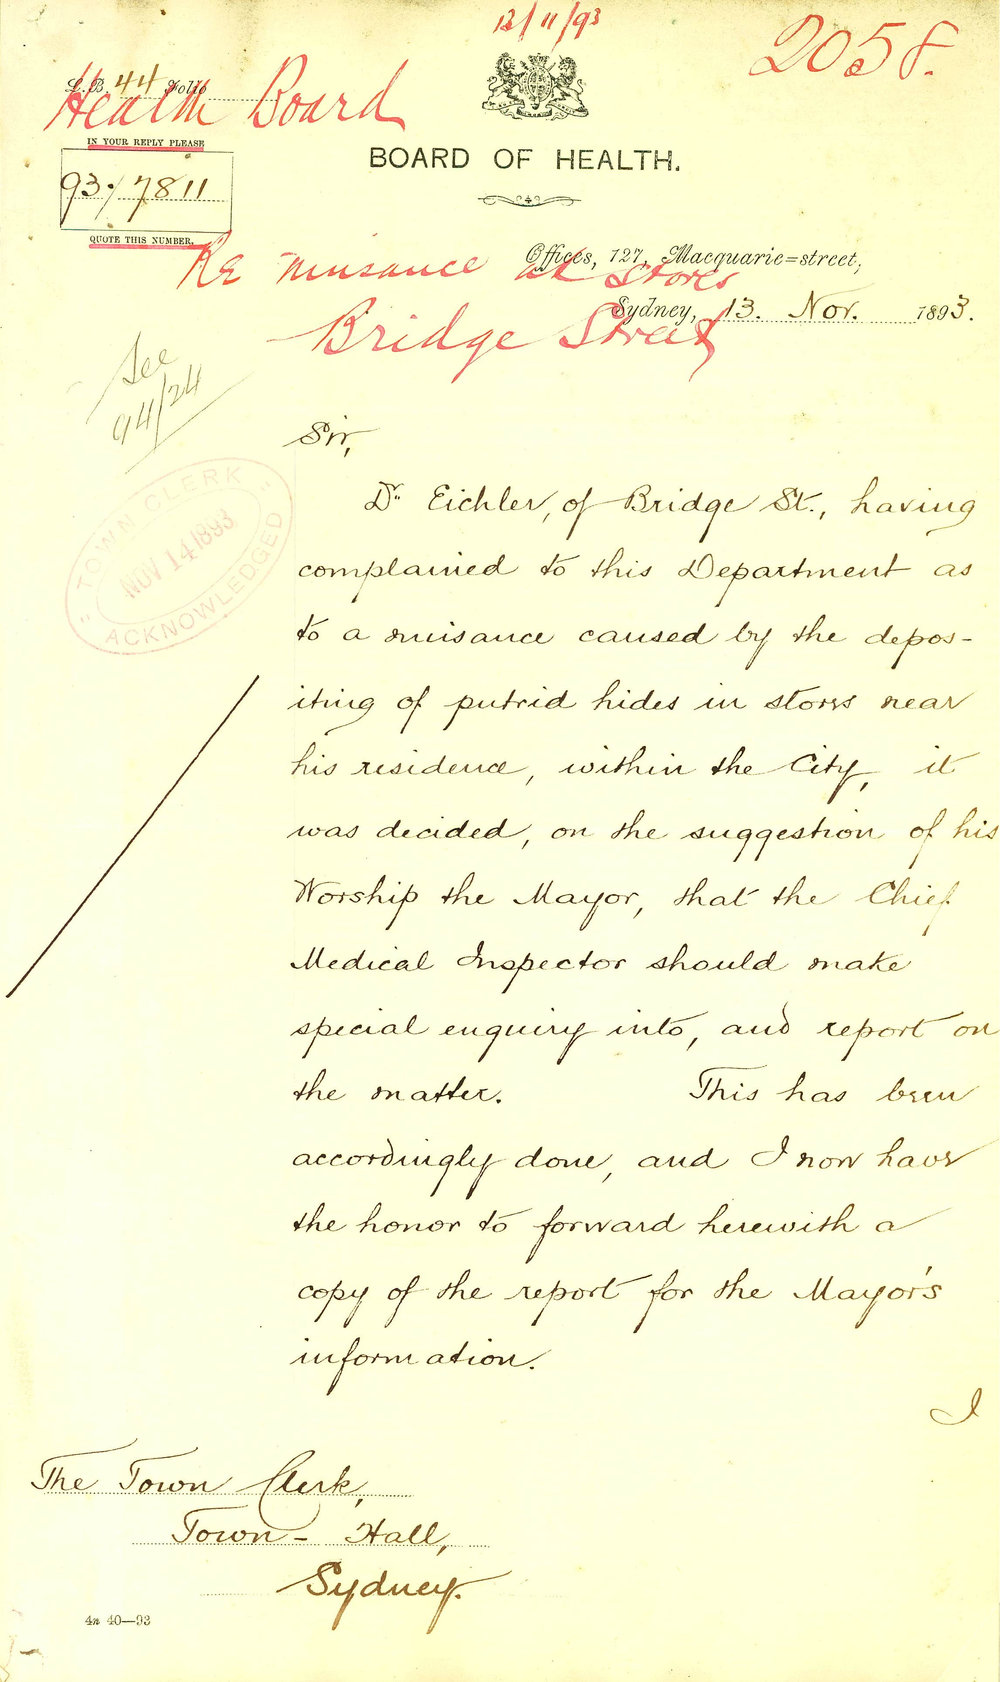 13/11/93
2058.
L.B. 44 Folio
Health Board
IN YOUR REPLY PLEASE
93/7811
QUOTE THIS NUMBER.
BOARD OF HEALTH.
Offices, 127, Macquarie=street,
Re nuisance at Stores
Sydney, 13. Nov. 1893.
Bridge Street
See
94/24
"TOWN CLERK"
NOV 14 1893
ACKNOWLEDGED
Sir,
Dr. Eichler, of Bridge St., having
complained to this Department as
to a nuisance caused by the depos-
iting of putrid hides in stores near
his residence, within the City, it
was decided, on the suggestion of his
Worship the Mayor, that the Chief
Medical Inspector should make
special enquiry into, and report on
the matter. This has been
accordingly done, and I now have
the honor to forward herewith a
copy of the report for the Mayor's
information.
I
The Town Clerk,
Town-Hall,
Sydney.
4n 40—93